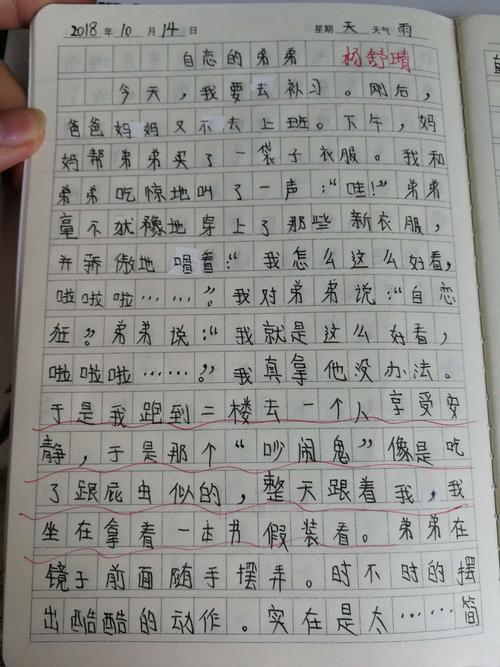 2018年10月14日 星期天 天气雨
自恋的弟弟 杨舒晴
今天，我要去补习。刚后，
爸爸妈妈又不去上班。下午，妈
妈帮弟弟买了一袋子衣服。我和
弟弟吃惊地叫了一声：“哇！”弟弟
毫不犹豫地穿上了那些新衣服，
并骄傲地唱着：“我怎么这么好看，
啦啦啦……”。我对弟弟说：“自恋
狂”。弟弟说：“我就是这么好看，
啦啦啦……”。我真拿他没办法。
于是我跑到二楼去一个人享受安
静，于是那个“吵闹鬼”像是吃
了跟屁虫似的，整天跟着我，我
坐在拿着一本书假装看。弟弟在
镜子前面随手摆弄。时不时的摆
出酷酷的动作。实在是太……简